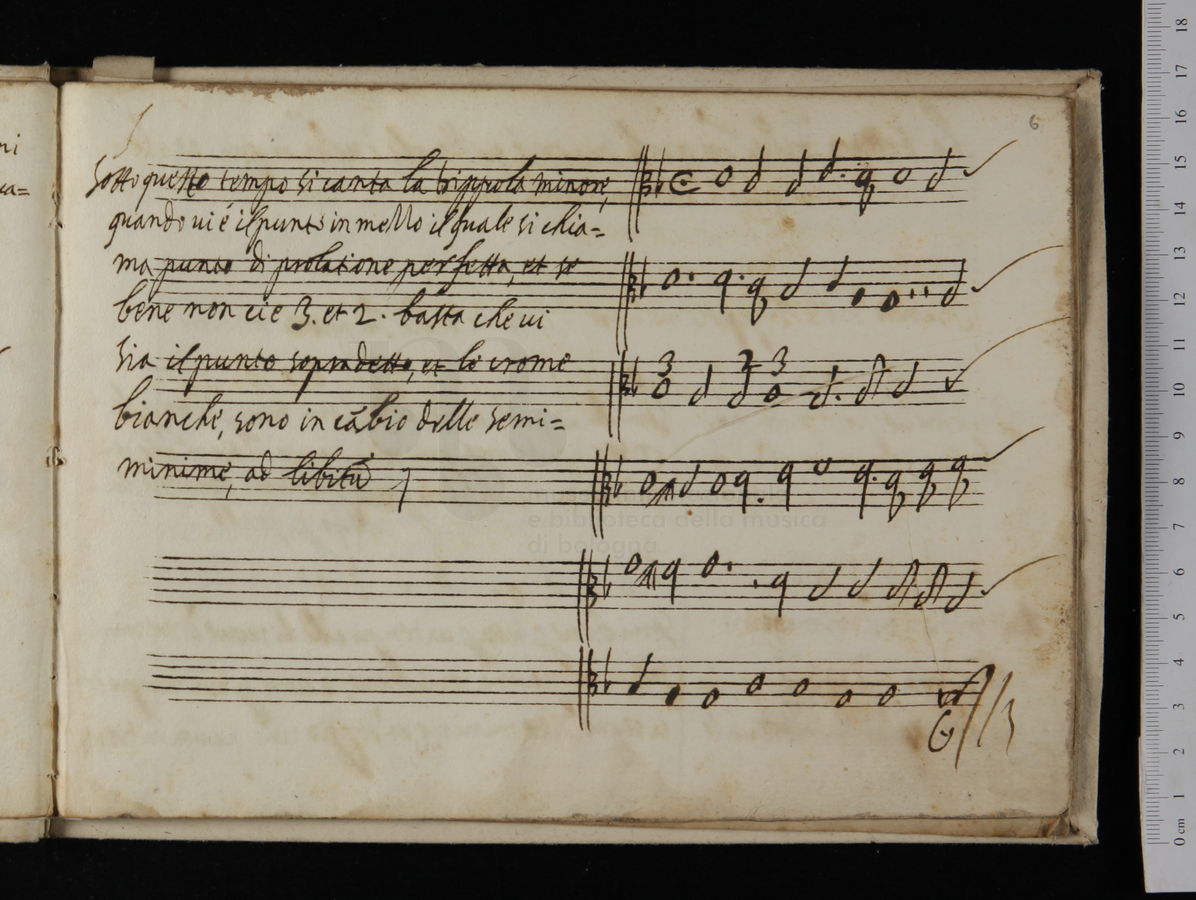 6
ni
ca=
Sotto questo tempo si canta la trippola minore,
quando ui é il punto in mezzo il quale si chia=
ma punto di prolatione perfetta, et se
bene non cie 3. et 2. basta che ui
sia il punto sopradetto, et le crome
bianche, sono in cābio delle semi=
minime, ad libitū
3 3 3
e biblioteca della musica
di bologna
18
17
16
15
14
13
12
11
10
9
8
7
6
5
4
3
2
1
0 cm